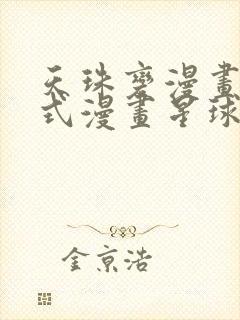 天珠變漫畫
式漫畫星球
金京浩